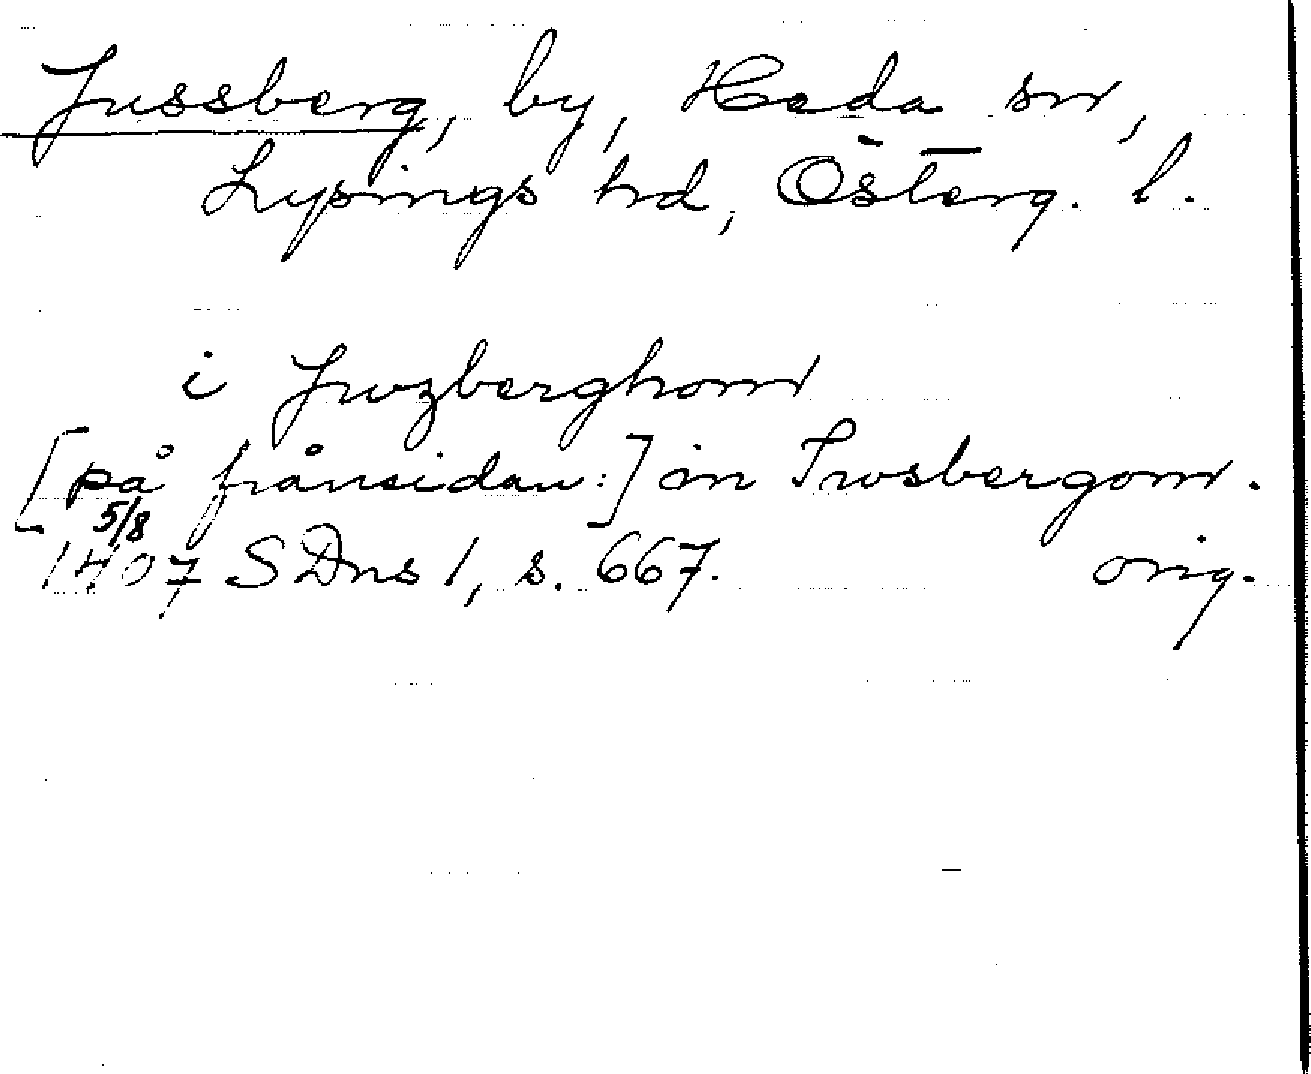 Jussberg, by, Heda sn,
Lysings hd, Österg. l.
i Jwzberghom
[på frånsidan:] in Iwsbergom.
5/8
1407 SDns 1, s. 667. orig.